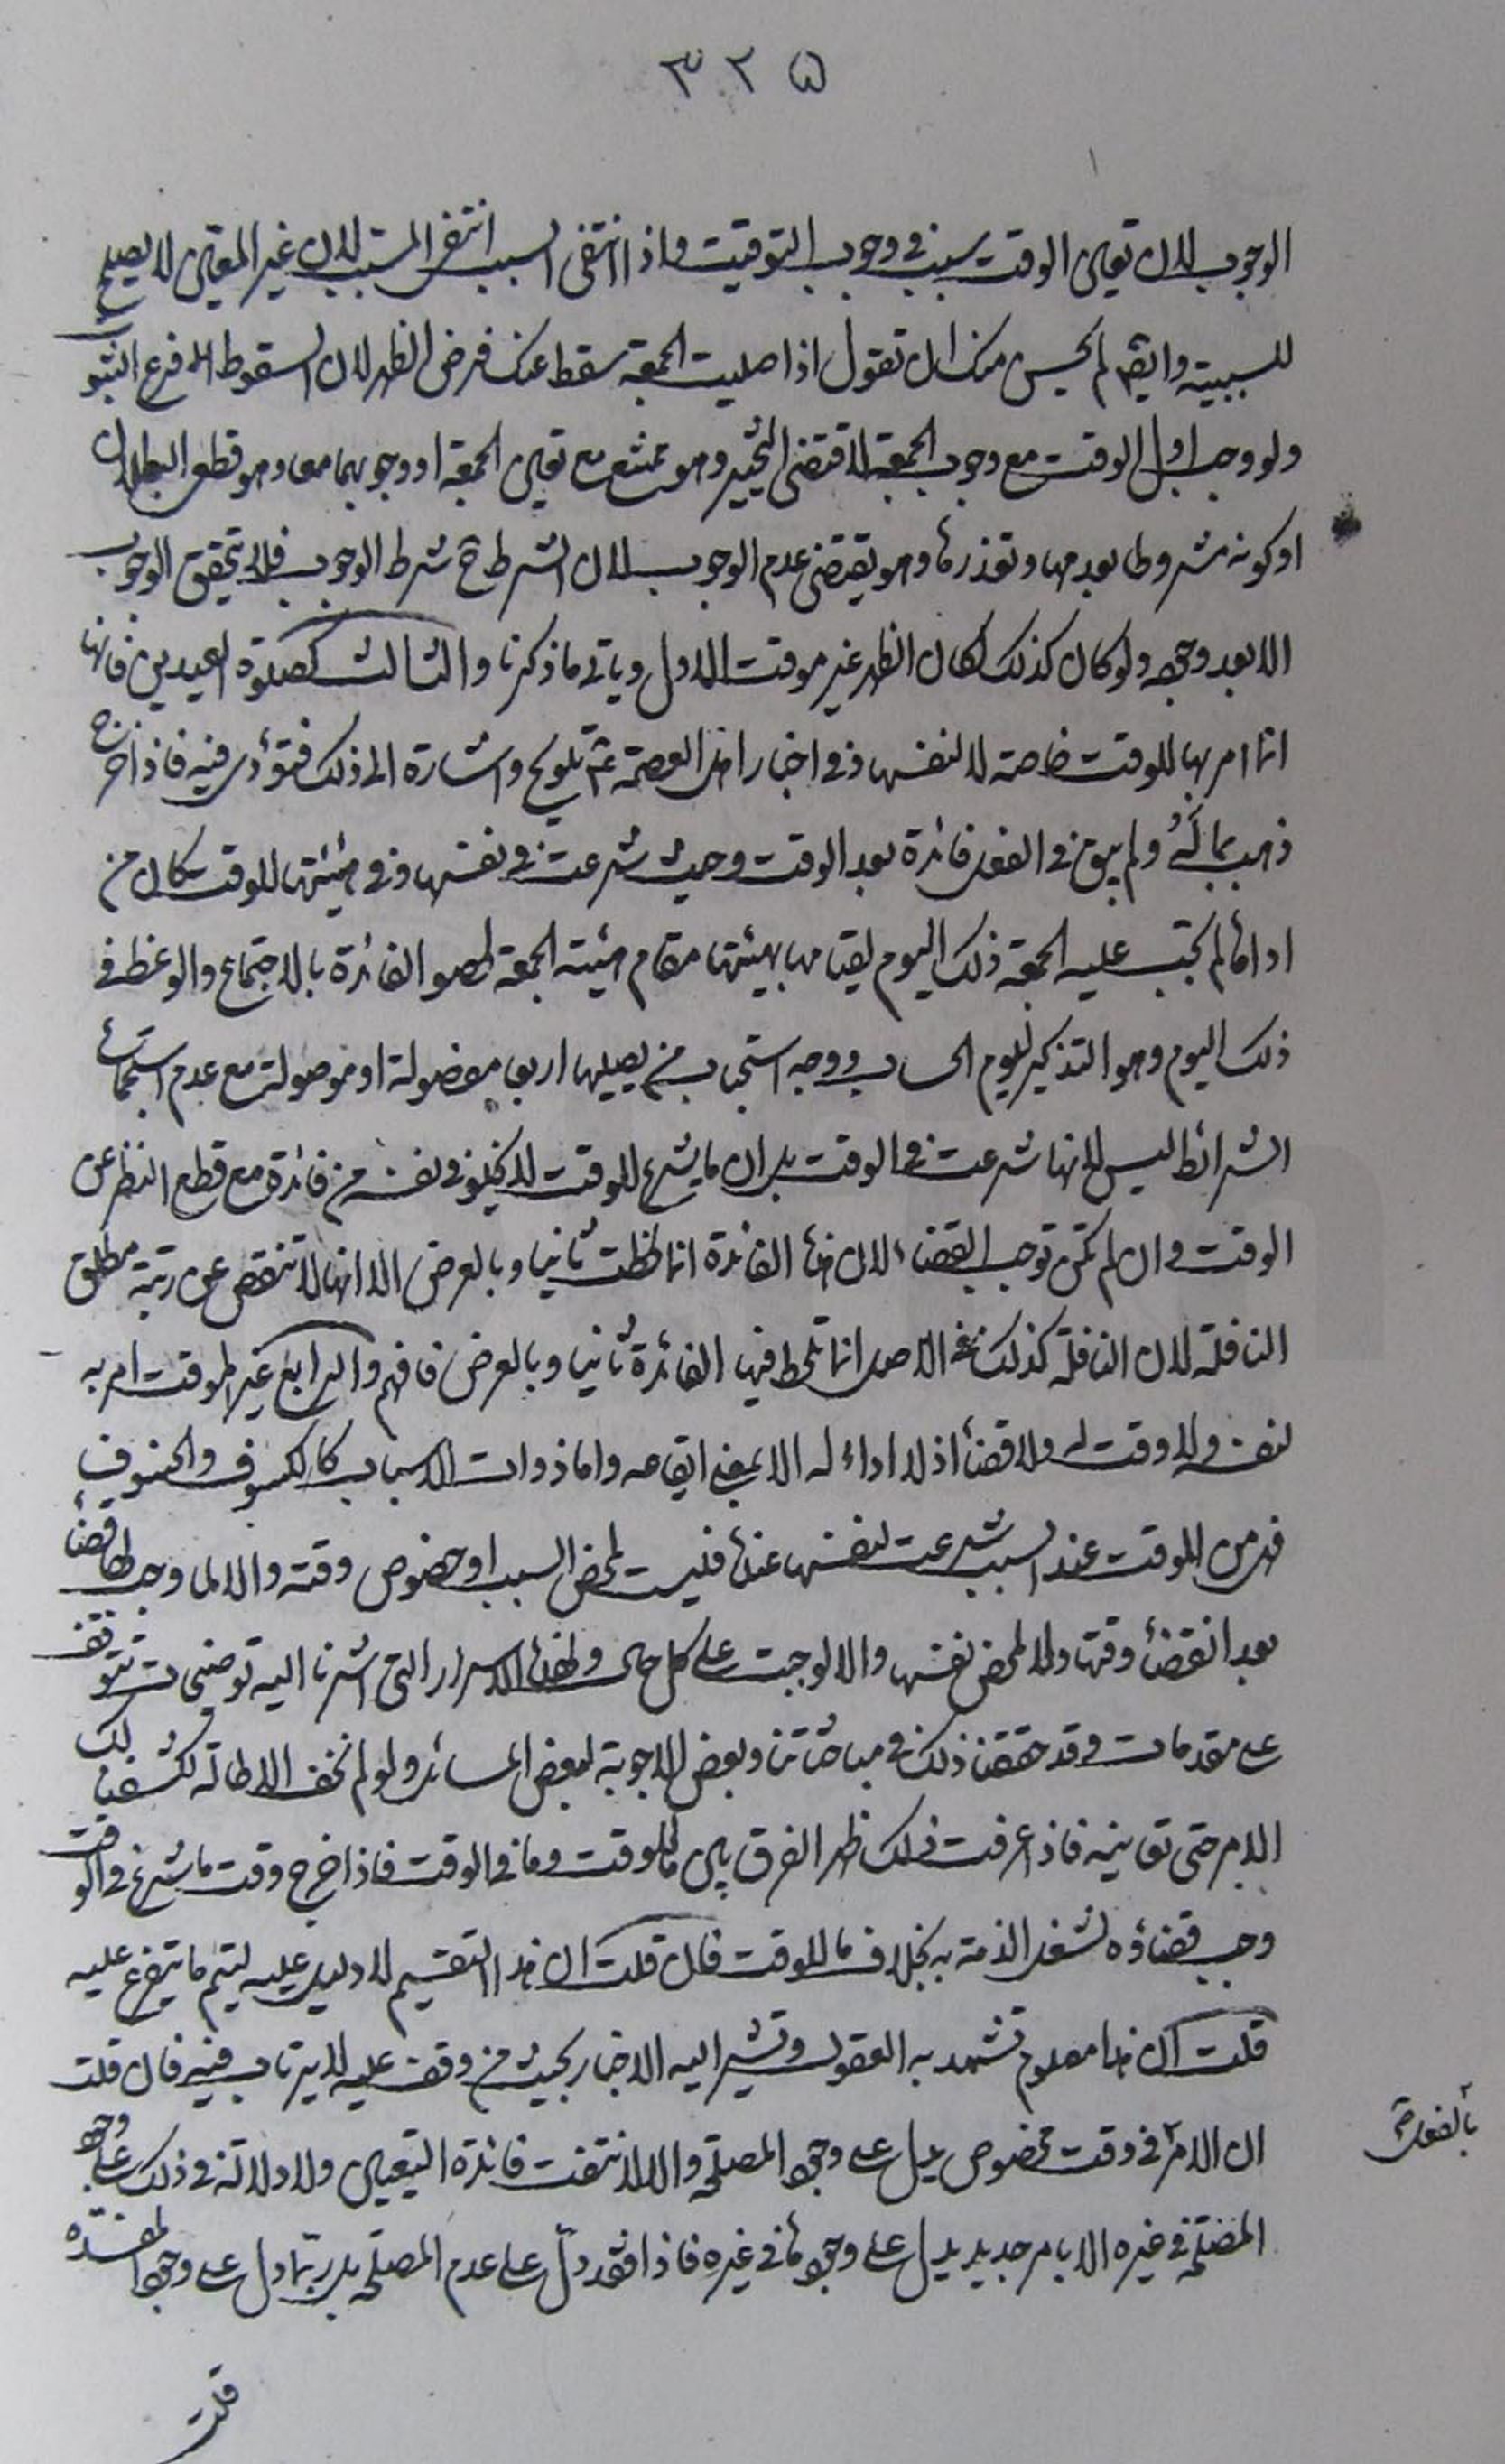 ٣٢٥
الوجوب لان تعين الوقت سبب في وجوب التوقيت واذا انتفى السبب انتفى المسبب لان غير المعين لا يصلح
للسببية وايضا لم يحسن منك ان تقول اذا صليت الجمعة سقط عنك فرض الظهر لان السقوط فرع الثبو
ولو وجب اول الوقت مع وجوب الجمعة لاقتضى التخيير وهو ممتنع مع تعين الجمعة او وجوبهما معا وهو قطعي البطلان
او كونه مشروطا بعدمها وتعذرها وهو يقتضي عدم الوجوب لان الشرط ح شرط الوجوب فلا يتحقق الوجوب
الا بعد وجوده ولو كان كذلك لكان الظهر غير موقت الاول وياتي ما ذكرنا والثالث كصلوة العيدين فانها
انما امر بها للوقت خاصة لا لنفسها وفي اخبار اهل العصمة ع تلويح واشارة الى ذلك فتؤدى فيه فاذا خرج
ذهب بماله ولم يبق في الفعل فائدة بعد الوقت وحيث شرعت في نفسها وفي هيئتها للوقت كان من
اداها لم تجب عليه الجمعة ذلك اليوم لقيامها بهيئتها مقام هيئة الجمعة لحصو الفائدة بالاجتماع والوعظ في
ذلك اليوم وهو التذكير ليوم الحساب ووجه استحباب من يصليها اربعا مفصولة او موصولة مع عدم استجماع
الشرائط ليس لانها شرعت في الوقت بل ان ما يشرع للوقت لا يخلو في نفسه من فائدة مع قطع النظر عن
الوقت وان لم تكن توجب القضاء لان هذه الفائدة انما لحظت ثانيا وبالعرض الا انها لا تنقص عن رتبة مطلق
النافلة لان النافلة كذلك في الاصل انما تلحظ فيها الفائدة ثانيا وبالعرض فافهم والرابع غير الموقت امر به
لنفسه ولا وقت له ولا قضاء اذ لا اداء له الا بمعنى ايقاعه واما ذوات الاسباب كالكسوف والخسوف
فهي من الموقت عند السبب شرعت لنفسها عنده فليست لمحض السبب او خصوص وقته والا لما وجب لها قضاء
بعد انقضاء وقتها ولا لمحض نفسها والا لوجبت على كل حال ولهذه الاسرار التي اشرنا اليه توضيحات تتوقف
على مقدمات وقد حققنا ذلك في مباحثاتنا وبعض الاجوبة لبعض المسائل ولو لم نخف الاطالة لكشفنا لك
الامر حتى تعاينه فاذا عرفت ذلك ظهر الفرق بين ما للوقت وما في الوقت فاذا خرج وقت ما شرع في الوقت
وجب قضاؤه لشغل الذمة به بخلاف ما للوقت فان قلت ان هذا التقسيم لا دليل عليه ليتم ما يتفرع عليه
قلت ان هذا معلوم تشهد به العقول وتشير اليه الاخبار بحيث من وقف عليه لا يرتاب فيه فان قلت
ان الامر في وقت مخصوص يدل على وجود المصلحة والا لانتفت فائدة التعيين ولا دلالة في ذلك على وجود
بالفعل
المصلحة في غيره الا بامر جديد يدل على وجودها في غيره فاذا فقد دل على عدم المصلحة بل ربما دل على وجود المفسدة
قلت